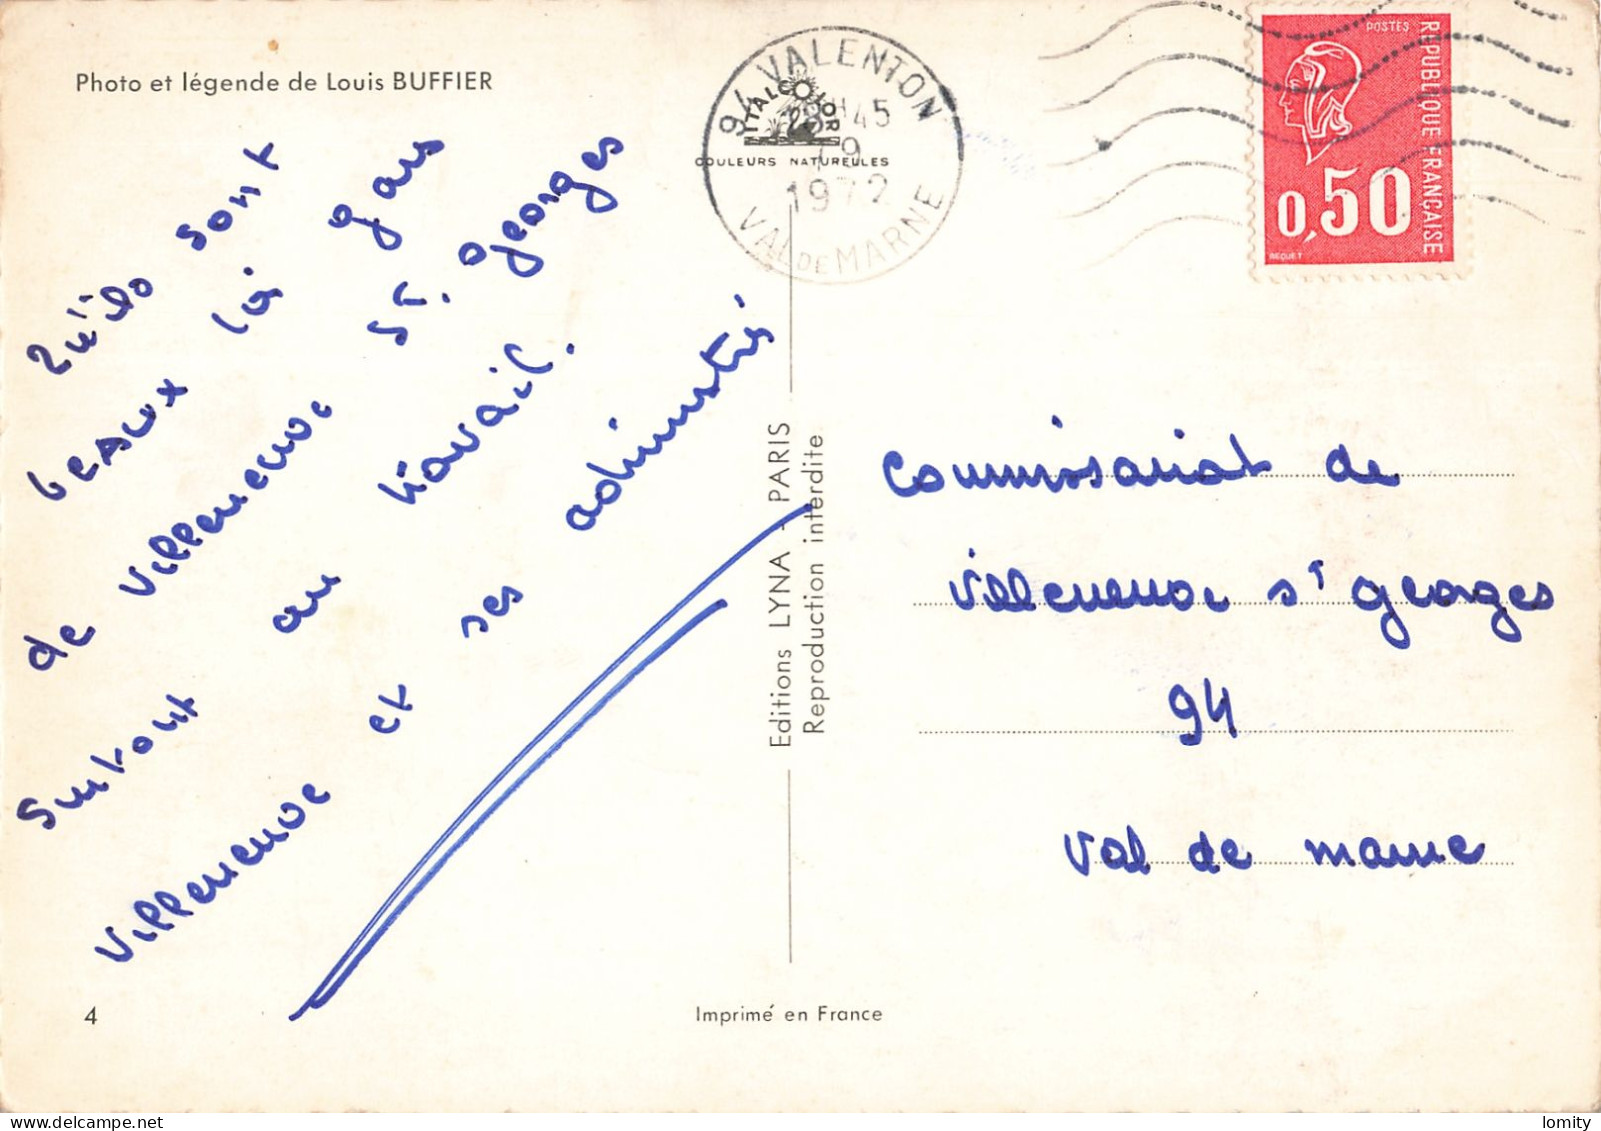 Photo et légende de Louis BUFFIER
qu'ils sont
beaux là gars
de Villeneuve St. georges
surtout au travail.
Villeneuve et ses administrés
4
94 VALENTON
18H45
9
1972
VAL DE MARNE
ITALCOLOR
COULEURS NATURELLES
POSTES
REPUBLIQUE FRANCAISE
0,50
BEQUET
Editions LYNA - PARIS
Reproduction interdite
Commissariat de
Villeneuve st georges
94
Val de marne
Imprimé en France
lomity